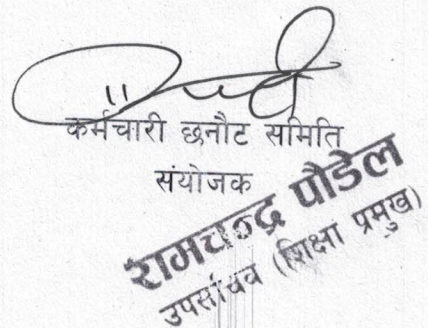 कर्मचारी छनौट समिति
संयोजक
रामचन्द्र पौडेल
उपसचिव (शिक्षा प्रमुख)